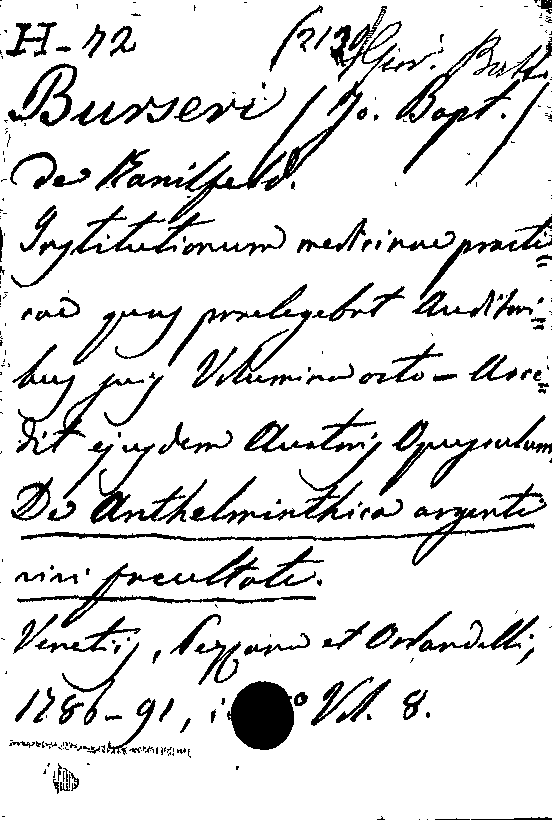 H-72 (2139) Giov. Batt.
Burseri (Jo. Bapt.)
de Kanilfeld.
Institutionum medicinae practi=
cae quas praelegebat Auditori=
bus suis Volumina octo - Acce=
dit ejusdem Auctoris Opusculum
De Anthelminthica argenti
vivi facultate.
Venetiis, Pezzana et Orlandelli,
1786-91, Vol. 8.